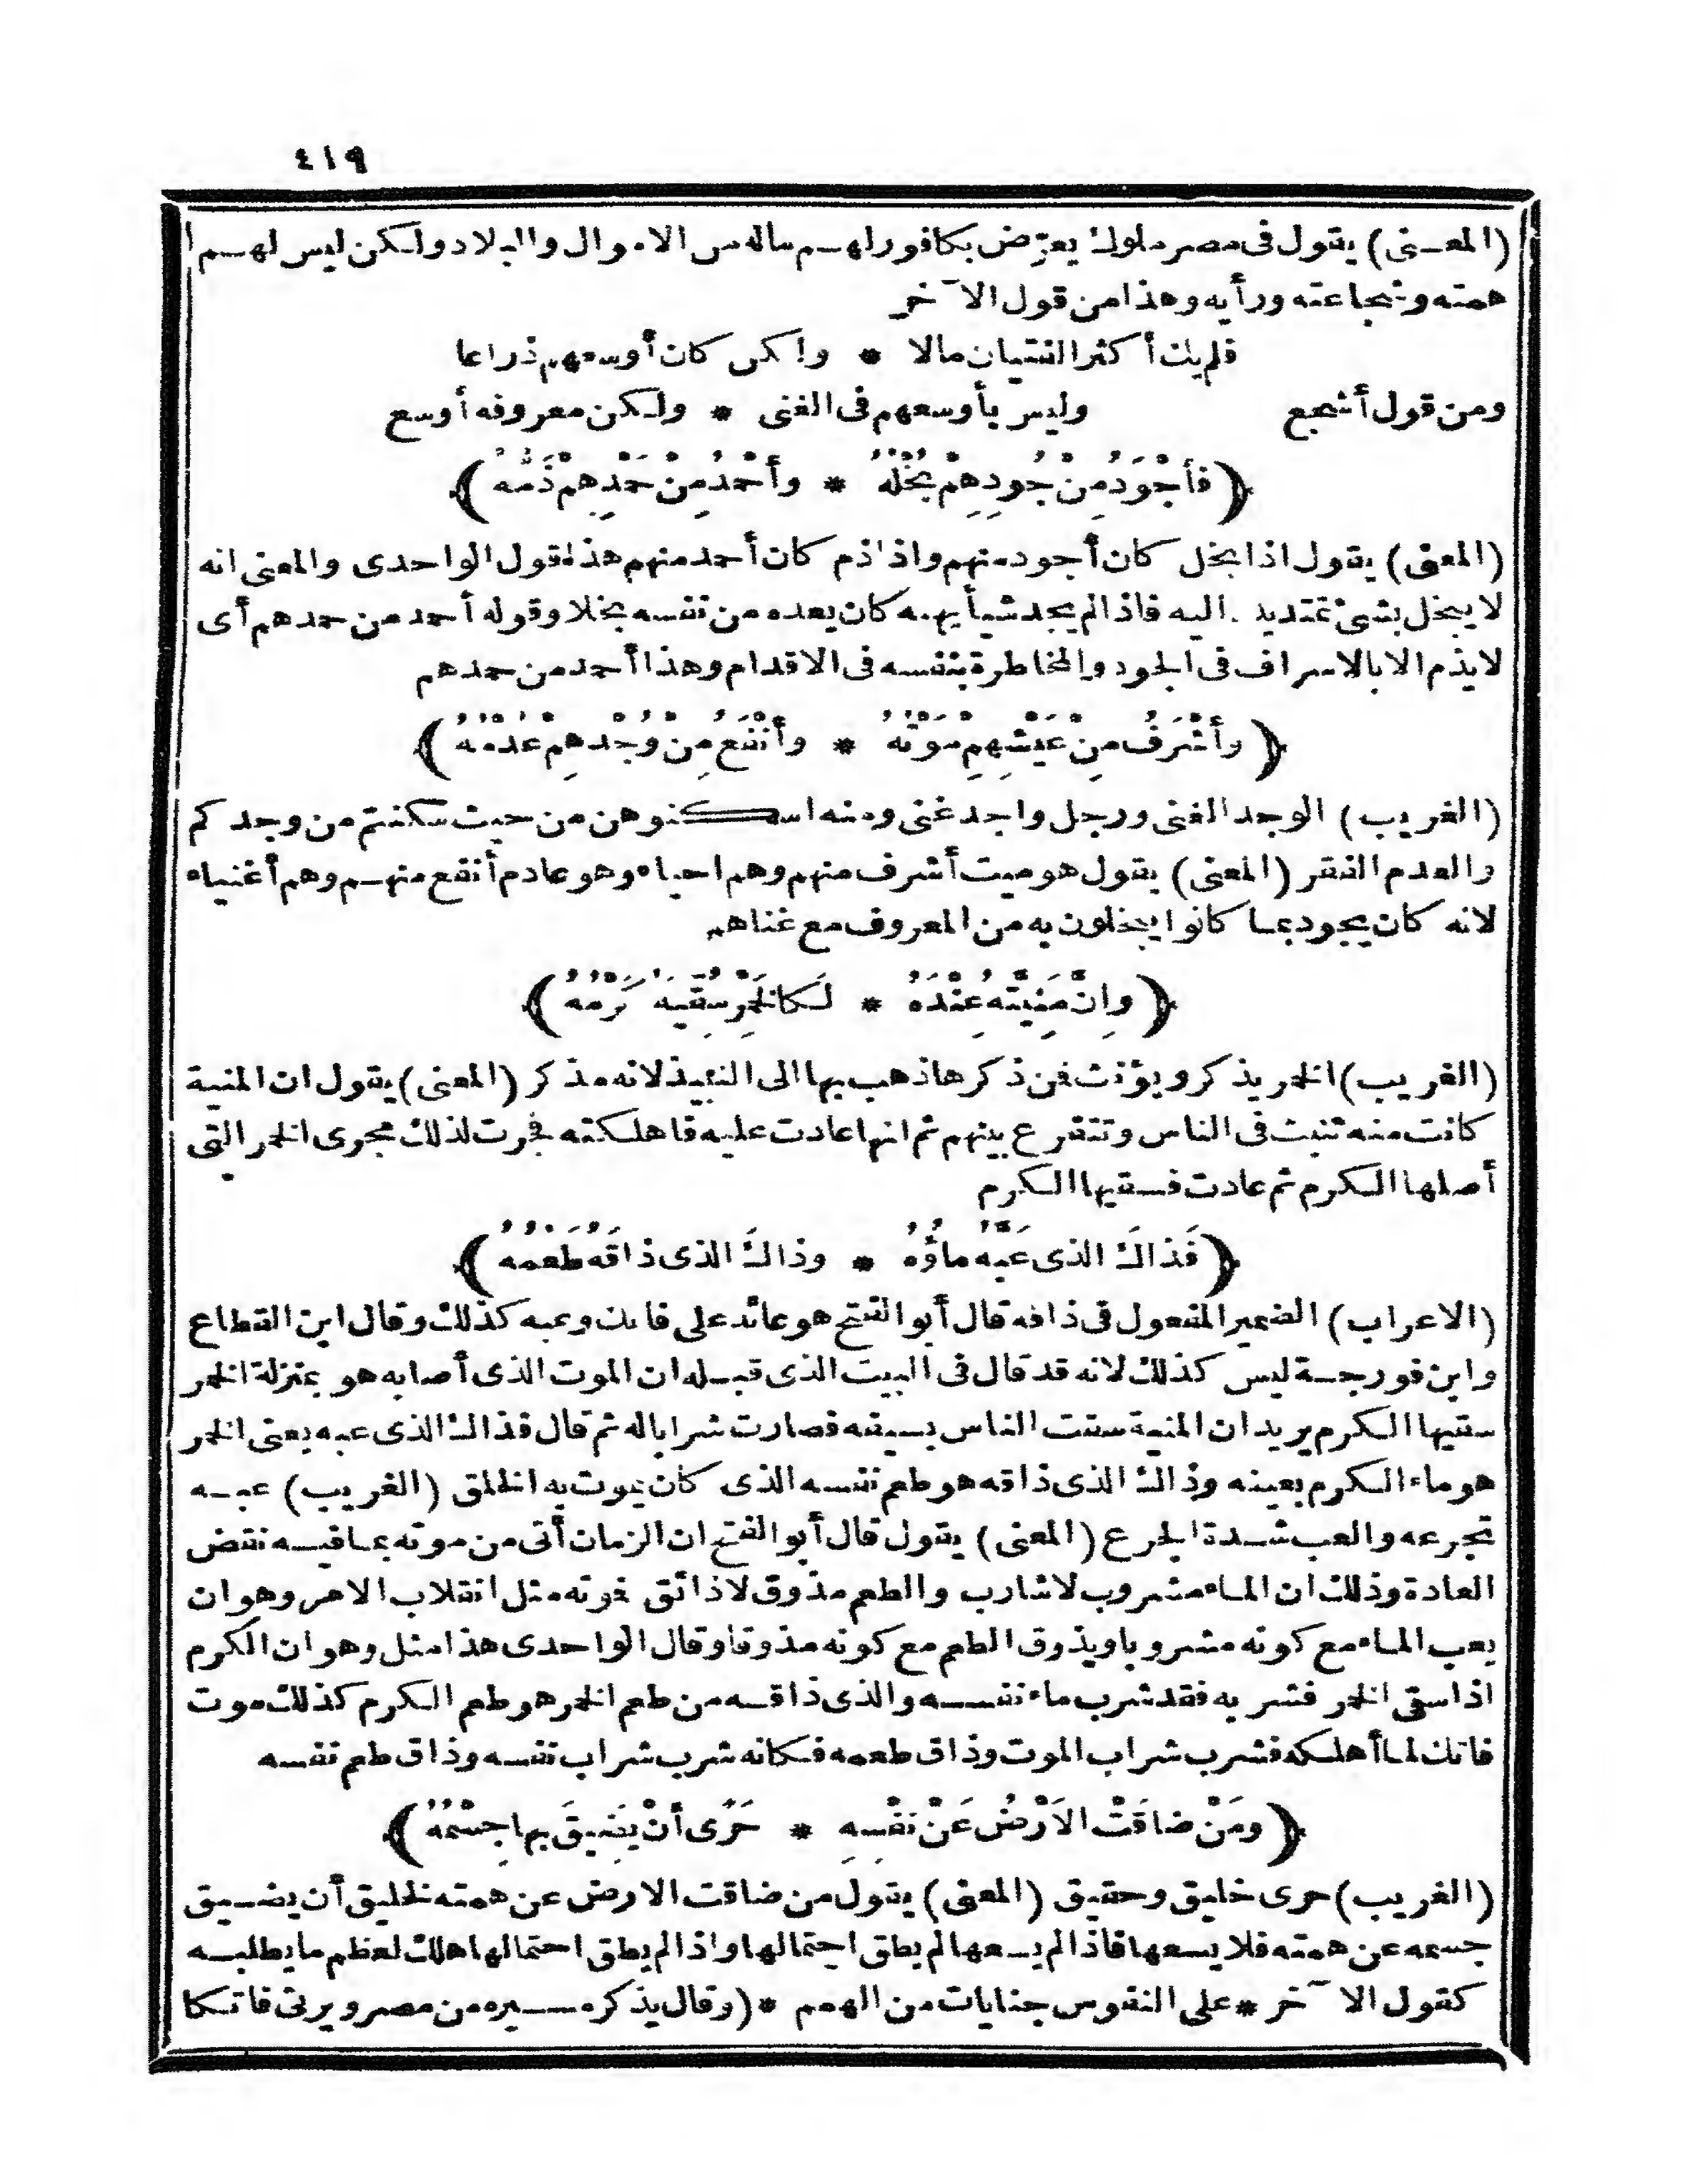 ٤١٩
(المعنى) يقول فى مصر ملوك يعرّض بكافور لهم ماله من الاموال والبلاد ولكن ليس لهم
همته وشجاعته ورأيه وهذا من قول الآخر
فلم يك أكثر الفتيان مالا * ولكن كان أوسعهم ذراعا
ومن قول أشجع وليس بأوسعهم فى الغنى * ولكن معروفه أوسع
﴿فَأَجْوَدُ مِنْ جُودِهِمْ بُخْلُهُ * وأَحْمَدُ مِنْ حَمْدِهِمْ ذَمُّهُ﴾
(المعنى) يقول اذا بخل كان أجود منهم واذا ذم كان أحمد منهم هذا قول الواحدى والمعنى انه
لا يبخل بشئ تمتد يد اليه فاذا لم يجد شيأ يهبه كان يعده من نفسه بخلا وقوله أحمد من حمدهم أى
لا يذم الا بالاسراف فى الجود والمخاطرة بنفسه فى الاقدام وهذا أحمد من حمدهم
﴿وأَشْرَفُ مِنْ عَيْشِهِمِ مَوْتُهُ * وأَنْفَعُ مِنْ وُجْدِهِمْ عُدْمُهُ﴾
(الغريب) الوجد الغنى ورجل واجد غنى ومنه اسكنوهن من حيث سكنتم من وجدكم
والعدم الفقر (المعنى) يقول هو ميت أشرف منهم وهم احياء وهو عادم أنفع منهم وهم أغنياء
لانه كان يجود بما كانوا يبخلون به من المعروف مع غناهم
﴿وانَّ مَنِيَّتَهُ عِنْدَهُ * لَكالخَمْرِ سُقِّيَهُ كَرْمُهُ﴾
(الغريب) الخمر يذكر ويؤنث فمن ذكرها ذهب بها الى النبيذ لانه مذكر (المعنى) يقول ان المنية
كانت منه تنبث فى الناس وتتفرع بينهم ثم انها عادت عليه فاهلكته فجرت لذلك مجرى الخمر التى
أصلها الكرم ثم عادت فسقيها الكرم
﴿فَذاكَ الذى عَبَّهُ ماؤُهُ * وذاكَ الذى ذاقَهُ طَعْمُهُ﴾
(الاعراب) الضمير المفعول فى ذاقه قال أبو الفتح هو عائد على فاتك وعبه كذلك وقال ابن القطاع
وابن فورجة ليس كذلك لانه قد قال فى البيت الذى قبله ان الموت الذى أصابه هو بمنزلة الخمر
سقيها الكرم يريد ان المنية سقت الناس بسيفه فصارت شرابا له ثم قال فذاك الذى عبه يعنى الخمر
هو ماء الكرم بعينه وذاك الذى ذاقه هو طعم نفسه الذى كان يموت به الخلق (الغريب) عبه
تجرعه والعب شدة الجرع (المعنى) يقول قال أبو الفتح ان الزمان أتى من موته بما فيه نقض
العادة وذلك ان الماء مشروب لا شارب والطعم مذوق لا ذائق فموته مثل انقلاب الامر وهو ان
يعب الماء مع كونه مشروبا ويذوق الطعم مع كونه مذوقا وقال الواحدى هذا مثل وهو ان الكرم
اذا سقى الخمر فشربه فقد شرب ماء نفسه والذى ذاقه من طعم الخمر هو طعم الكرم كذلك موت
فاتك لما أهلكه فشرب شراب الموت وذاق طعمه فكانه شرب شراب نفسه وذاق طعم نفسه
﴿ومَنْ ضاقَتْ الأَرْضُ عَنْ نَفْسِهِ * حَرًى أَنْ يَضِيقَ بها جِسْمُهُ﴾
(الغريب) حرى خليق وحقيق (المعنى) يقول من ضاقت الارض عن همته لخليق أن يضيق
جسمه عن همته فلا يسعها فاذا لم يسعها لم يطق احتمالها واذا لم يطق احتمالها هلك لعظم ما يطلبه
كقول الآخر * على النفوس جنايات من الهمم * (وقال يذكر مسيره من مصر ويرثى فاتكا